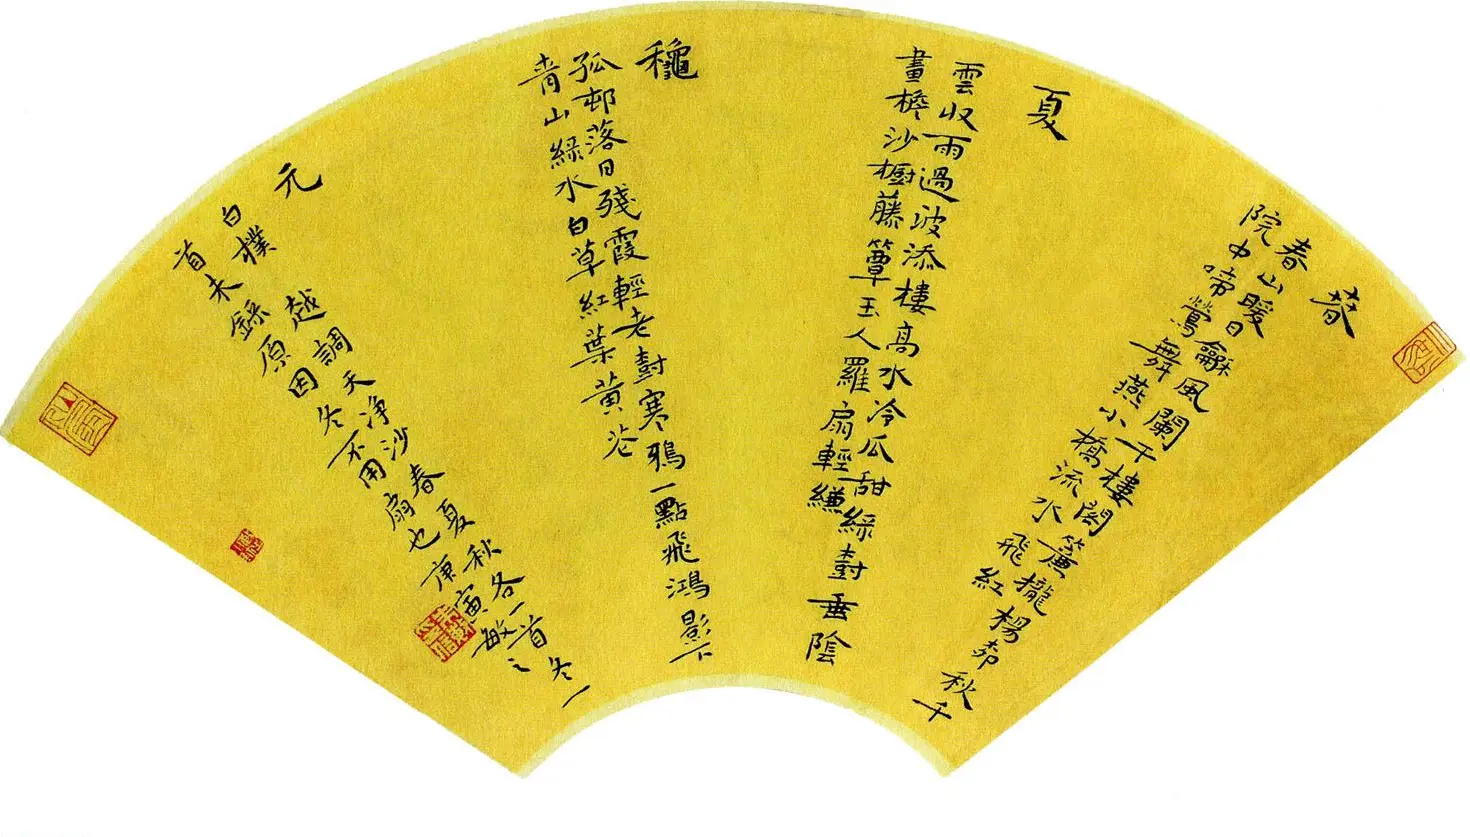 萅
春山暖日龢風闌干樓閣簾櫳楊柳秋千
院中啼鶯舞燕小橋流水飛紅
夏
雲收雨過波添樓高水冷瓜甜綠樹垂陰
畫檐沙櫥藤簟玉人羅扇輕縑
龝
孤邨落日殘霞輕老樹寒鴉一點飛鴻影下
青山綠水白草紅葉黃花
元
白樸越調天淨沙春夏秋各一首冬一
首未錄原因冬不用扇也庚寅敏之